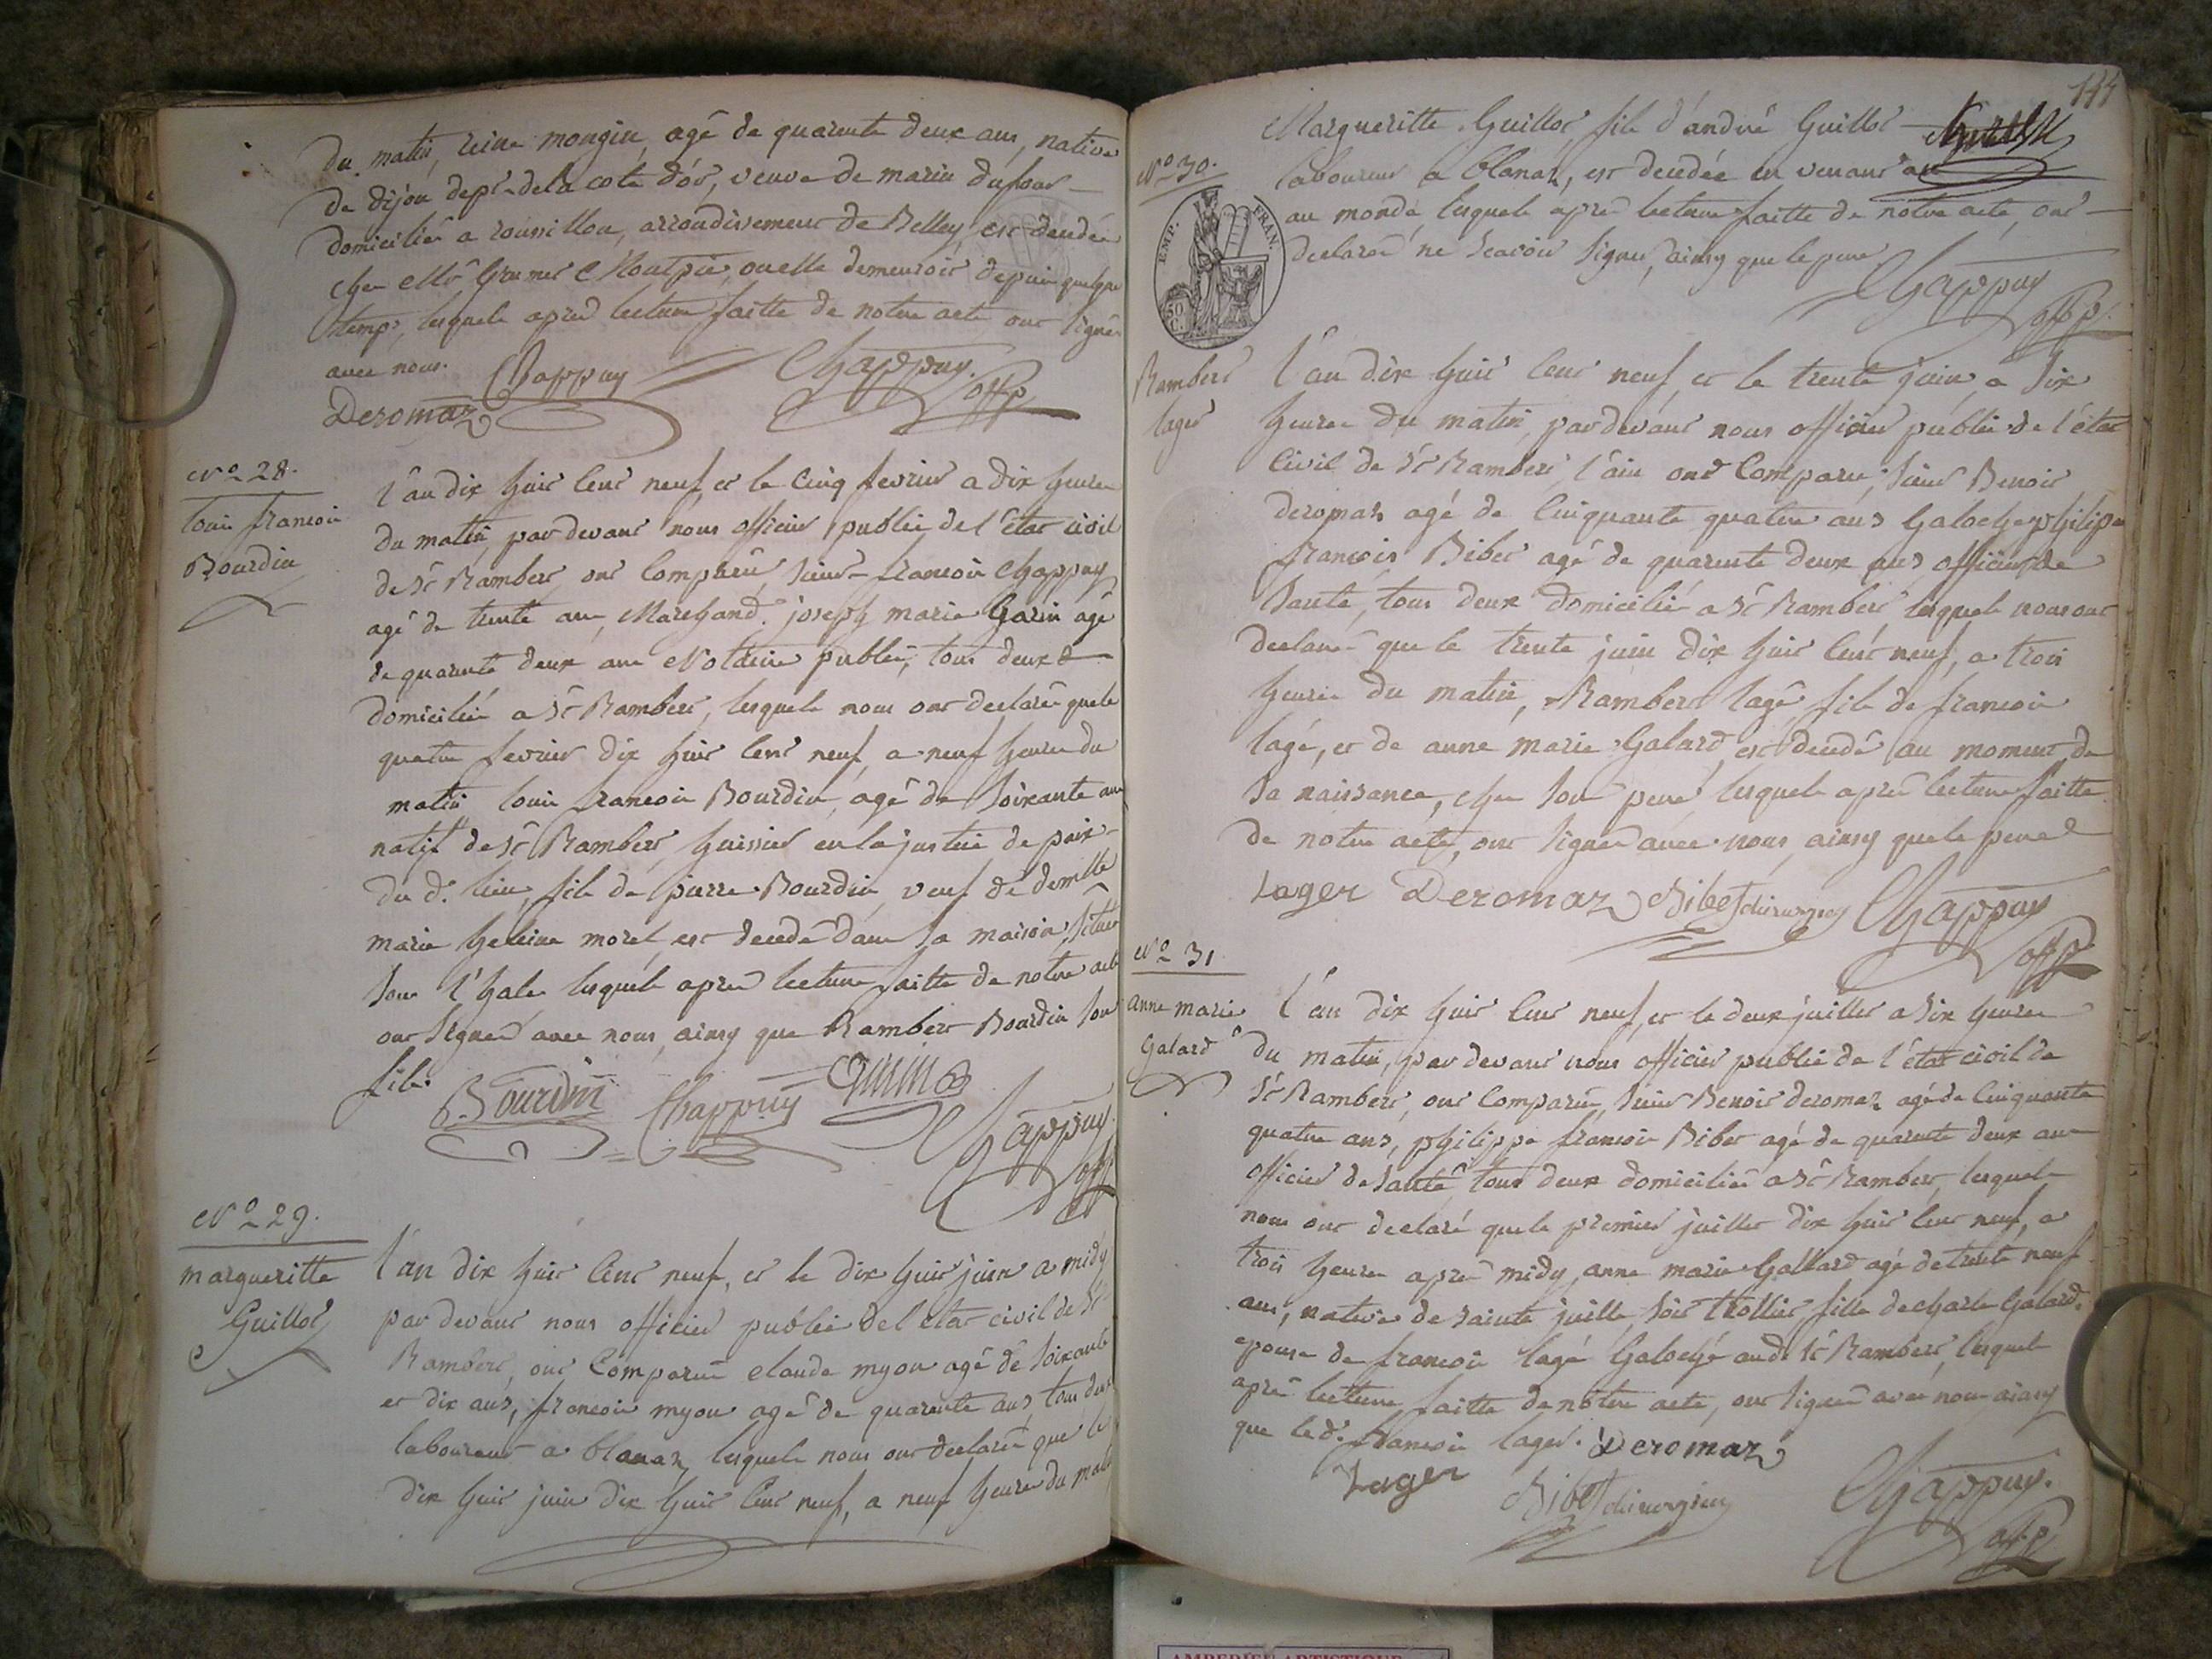 du matin, reine mongin, agé de quarente deux ans, native
de dijon depr. de la cote d'or, veuve de marin dufour
domiciliée a roussillon, arrondissement de Belley, est decedée
chez Mr Grumet Montpié, ou elle demeuroit depuis quelque
temps, lesquels apres lecture faitte de notre acte ont signés
avec nous. Chappuy Chappuy. offp
Deromaz
No 28.
louis francois
Bourdin
l'an dix huit cent neuf, et le cinq fevrier a dix heures
du matin, par devant nous officier publie de l'état civil
de St Rambert ont comparu, sieurs francois Chappuy
agé de trente ans, Marchand. joseph marie Garin agé
de quarente deux ans Notaire publie, tous deux
domiciliés a St Rambert, lesquels nous ont declaré que le
quatre fevrier dix huit cent neuf, a neuf heures du
matin louis francois Bourdin, agé de soixante ans
natif de St Rambert huissier en la justice de paix
du d. lieu, fils de pierre Bourdin, veuf de demlle
marie heleine morel, est decedé dans sa maison, située
sous l'hale lesquels apres lecture faitte de notre acte
ont signes avec nous, ainsy que Rambert Bourdin son
fils.
Bourdin Chappuy Garin
Chappuy.
offp
No 29.
margueritte
Guillot
l'an dix huit cent neuf, et le dix huit juin a midy
par devant nous officier publie de l'etat civil de St
Rambert, ont comparu claude myon agé de soixante
et dix ans, francois myon agé de quarente ans, tous deux
laboureurs a blanaz, lesquels nous ont declaré que le
dix huit juin dix huit cent neuf, a neuf heures du matin
144
Margueritte Guillot, file d'andré Guillot
laboureur a blanaz, est decedée en venant au
au monde, lesquels apres lecture faitte de notre acte, ont
declarés ne scavoir signer, ainsy que le pere
Chappuy
offp.
No 30.
EMP. FRAN.
50
C.
Rambert
lager
l'an dix huit cent neuf, et le trente juin, a six
heures du matin, par devant nous officier publie de l'état
civil de St Rambert, l'ain ont comparu, sieurs Benoit
deromaz agé de cinquante quatre ans Galoche philipe
francois Bibet agé de quarente deux ans officier de
santé, tous deux domiciliés a St Rambert, lesquels nous ont
declaré que le trente juin dix huit cent neuf, a trois
heures du matin, Rambert lagé fils de francois
lagé, et de anne marie Galard, est decedé au moment de
sa naissance, chez son pere lesquels apres lecture faitte
de notre acte, ont signes avec nous, ainsy que le pere
Lager Deromaz Bibet chirurgien Chappuy
offp
No 31
anne marie
Galard
l'an dix huit cent neuf, et le deux juillet a six heures
du matin, par devant nous officier publie de l'état civil de
St Rambert, ont comparu, sieurs Benoit deromaz agé de cinquante
quatre ans, philippe francois Bibet agé de quarente deux ans
officier de santé tous deux domiciliés a St Rambert, lesquels
nous ont declaré que le premier juillet dix huit cent neuf, a
trois heures apres midy anne marie Gallard agé de trente neuf
ans, native de sainte juille, fille de charle Galard,
epouse de francois lagé Galoché aud. St Rambert, lesquels
apres lecture faitte de notre acte, ont signés avec nous ainsy
que le d. francois lager. Deromaz
Lager Bibet chirurgien Chappuy.
offp
AMBERIEU ARTISTIQUE